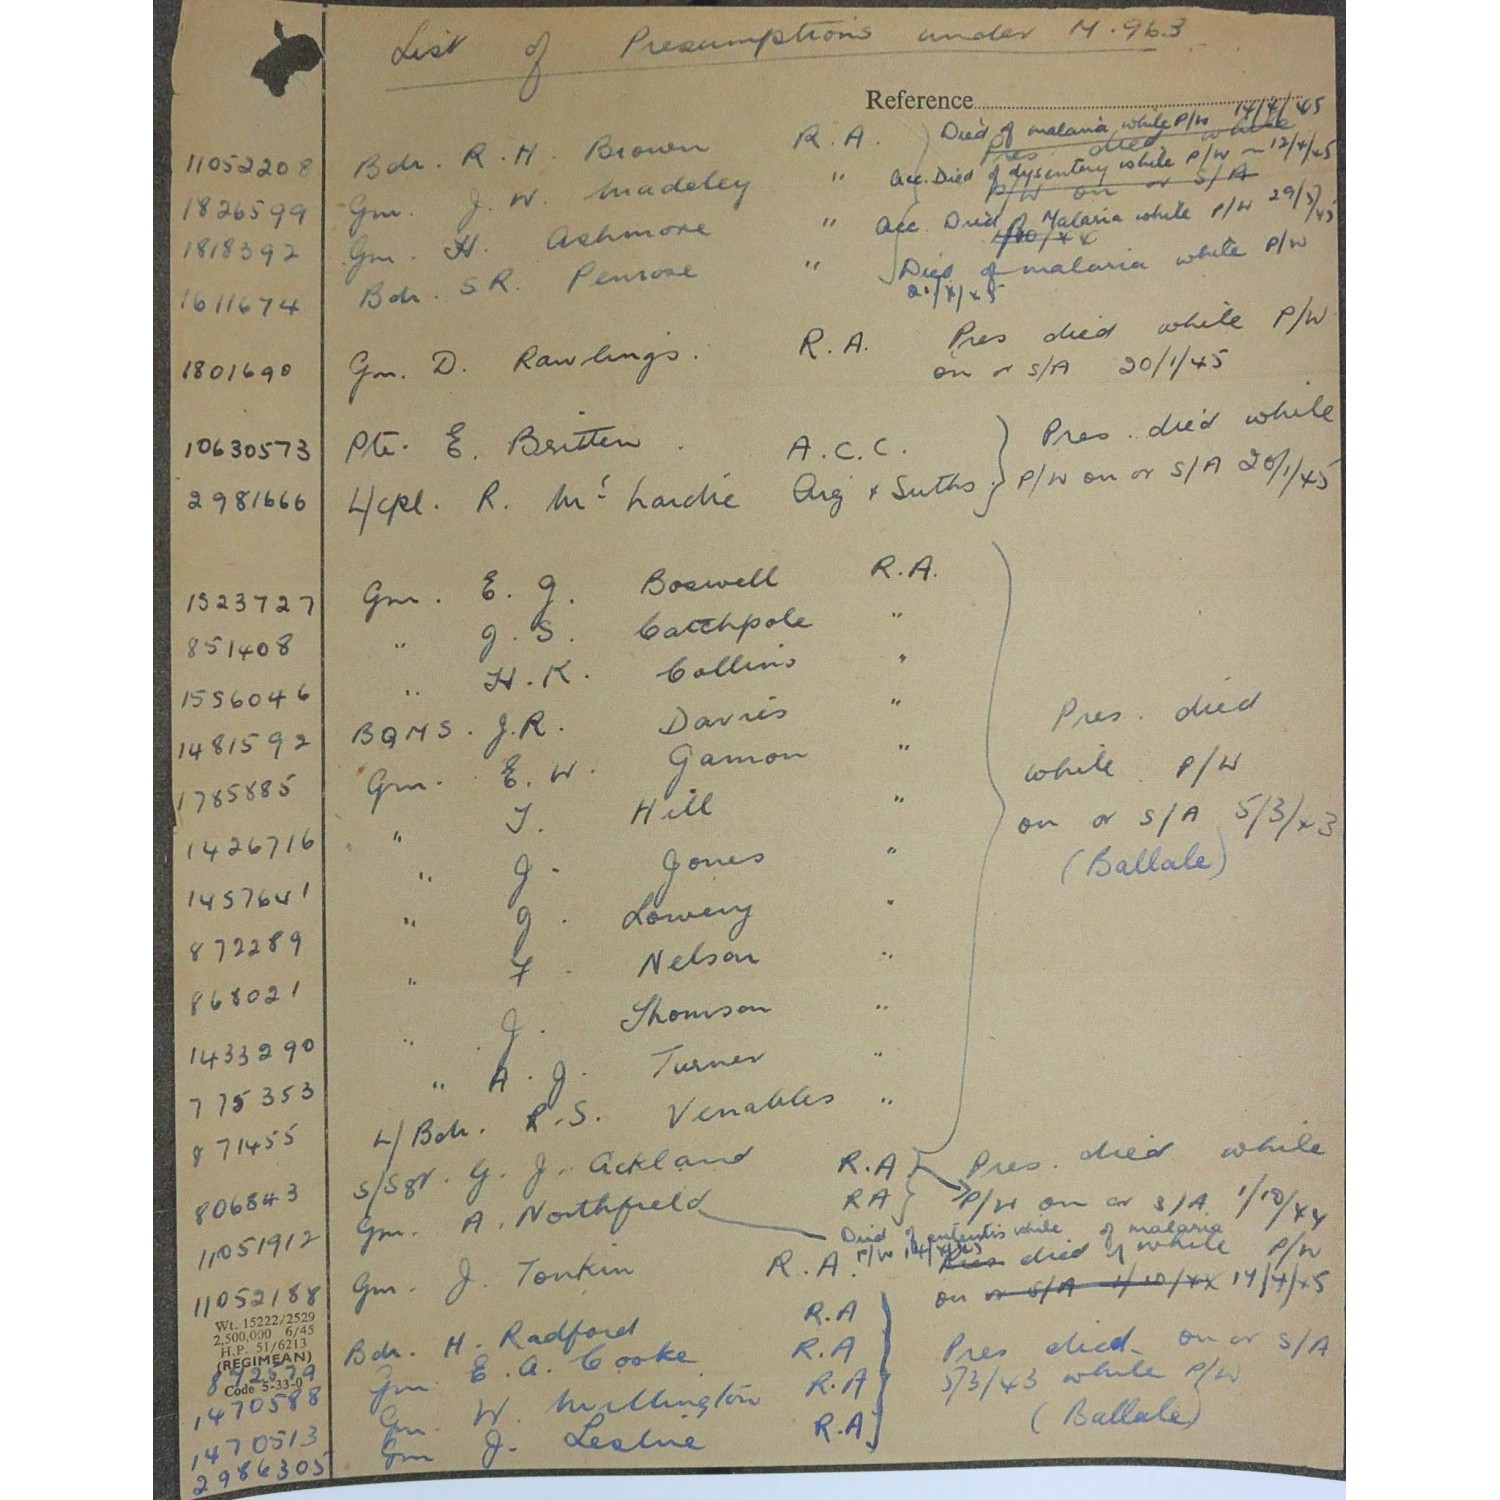 List of Presumptions under M.963
Reference
11052208 Bdr. R. H. Brown R.A. Died of malaria while P/W 14/4/45
Pres died while
1826599 Gnr. J. W. Madeley " acc. Died of dysentery while P/W - 12/4/45
P/W on or S/A
1818392 Gnr. H. Ashmore " acc. Died of Malaria while P/W 29/3/45
1611674 Bdr. S R. Penrose " Died of malaria while P/W
1801690 Gnr. D. Rawlings. R.A. Pres died while P/W
on or S/A 20/1/45
10630573 Pte. E. Britten. A.C.C. Pres. died while
2981666 L/cpl. R. Mc Lardie Arg & Suths. P/W on or S/A 20/1/45
1523727 Gnr. E. G. Boswell R.A.
851408 " J. S. Catchpole "
1556046 " H. K. Collins "
1481592 BQMS. J.R. Davies " Pres. died
1785885 Gnr. E. W. Gamon " while P/W
1426716 " T. Hill " on or S/A 5/3/43
1457641 " J. Jones " (Ballale)
872289 " J. Lowery "
868021 " F. Nelson "
1433290 " J. Thomson "
775353 " A. J. Turner "
871455 L/Bdr. R.S. Venables "
806843 S/Sgt. G. J. Ackland R.A Pres. died while
11051912 Gnr. A. Northfield RA P/W on or S/A 1/10/44
Died of enteritis while P/W 14/4/45
11052188 Gnr. J. Tonkin R.A. Pres died of malaria while P/W
on or S/A 1/10/44 14/4/45
Wt. 15222/2529
2,500,000 6/45
H.P. 51/6213
(REGIMEAN)
Code 5-33-0
Bdr. H. Radford R.A Pres died on or S/A
1470588 Gnr E. A. Cooke R.A 5/3/43 while P/W
1470513 Gnr. W. Millington R.A (Ballale)
2986305 Gnr J. Leslie R.A